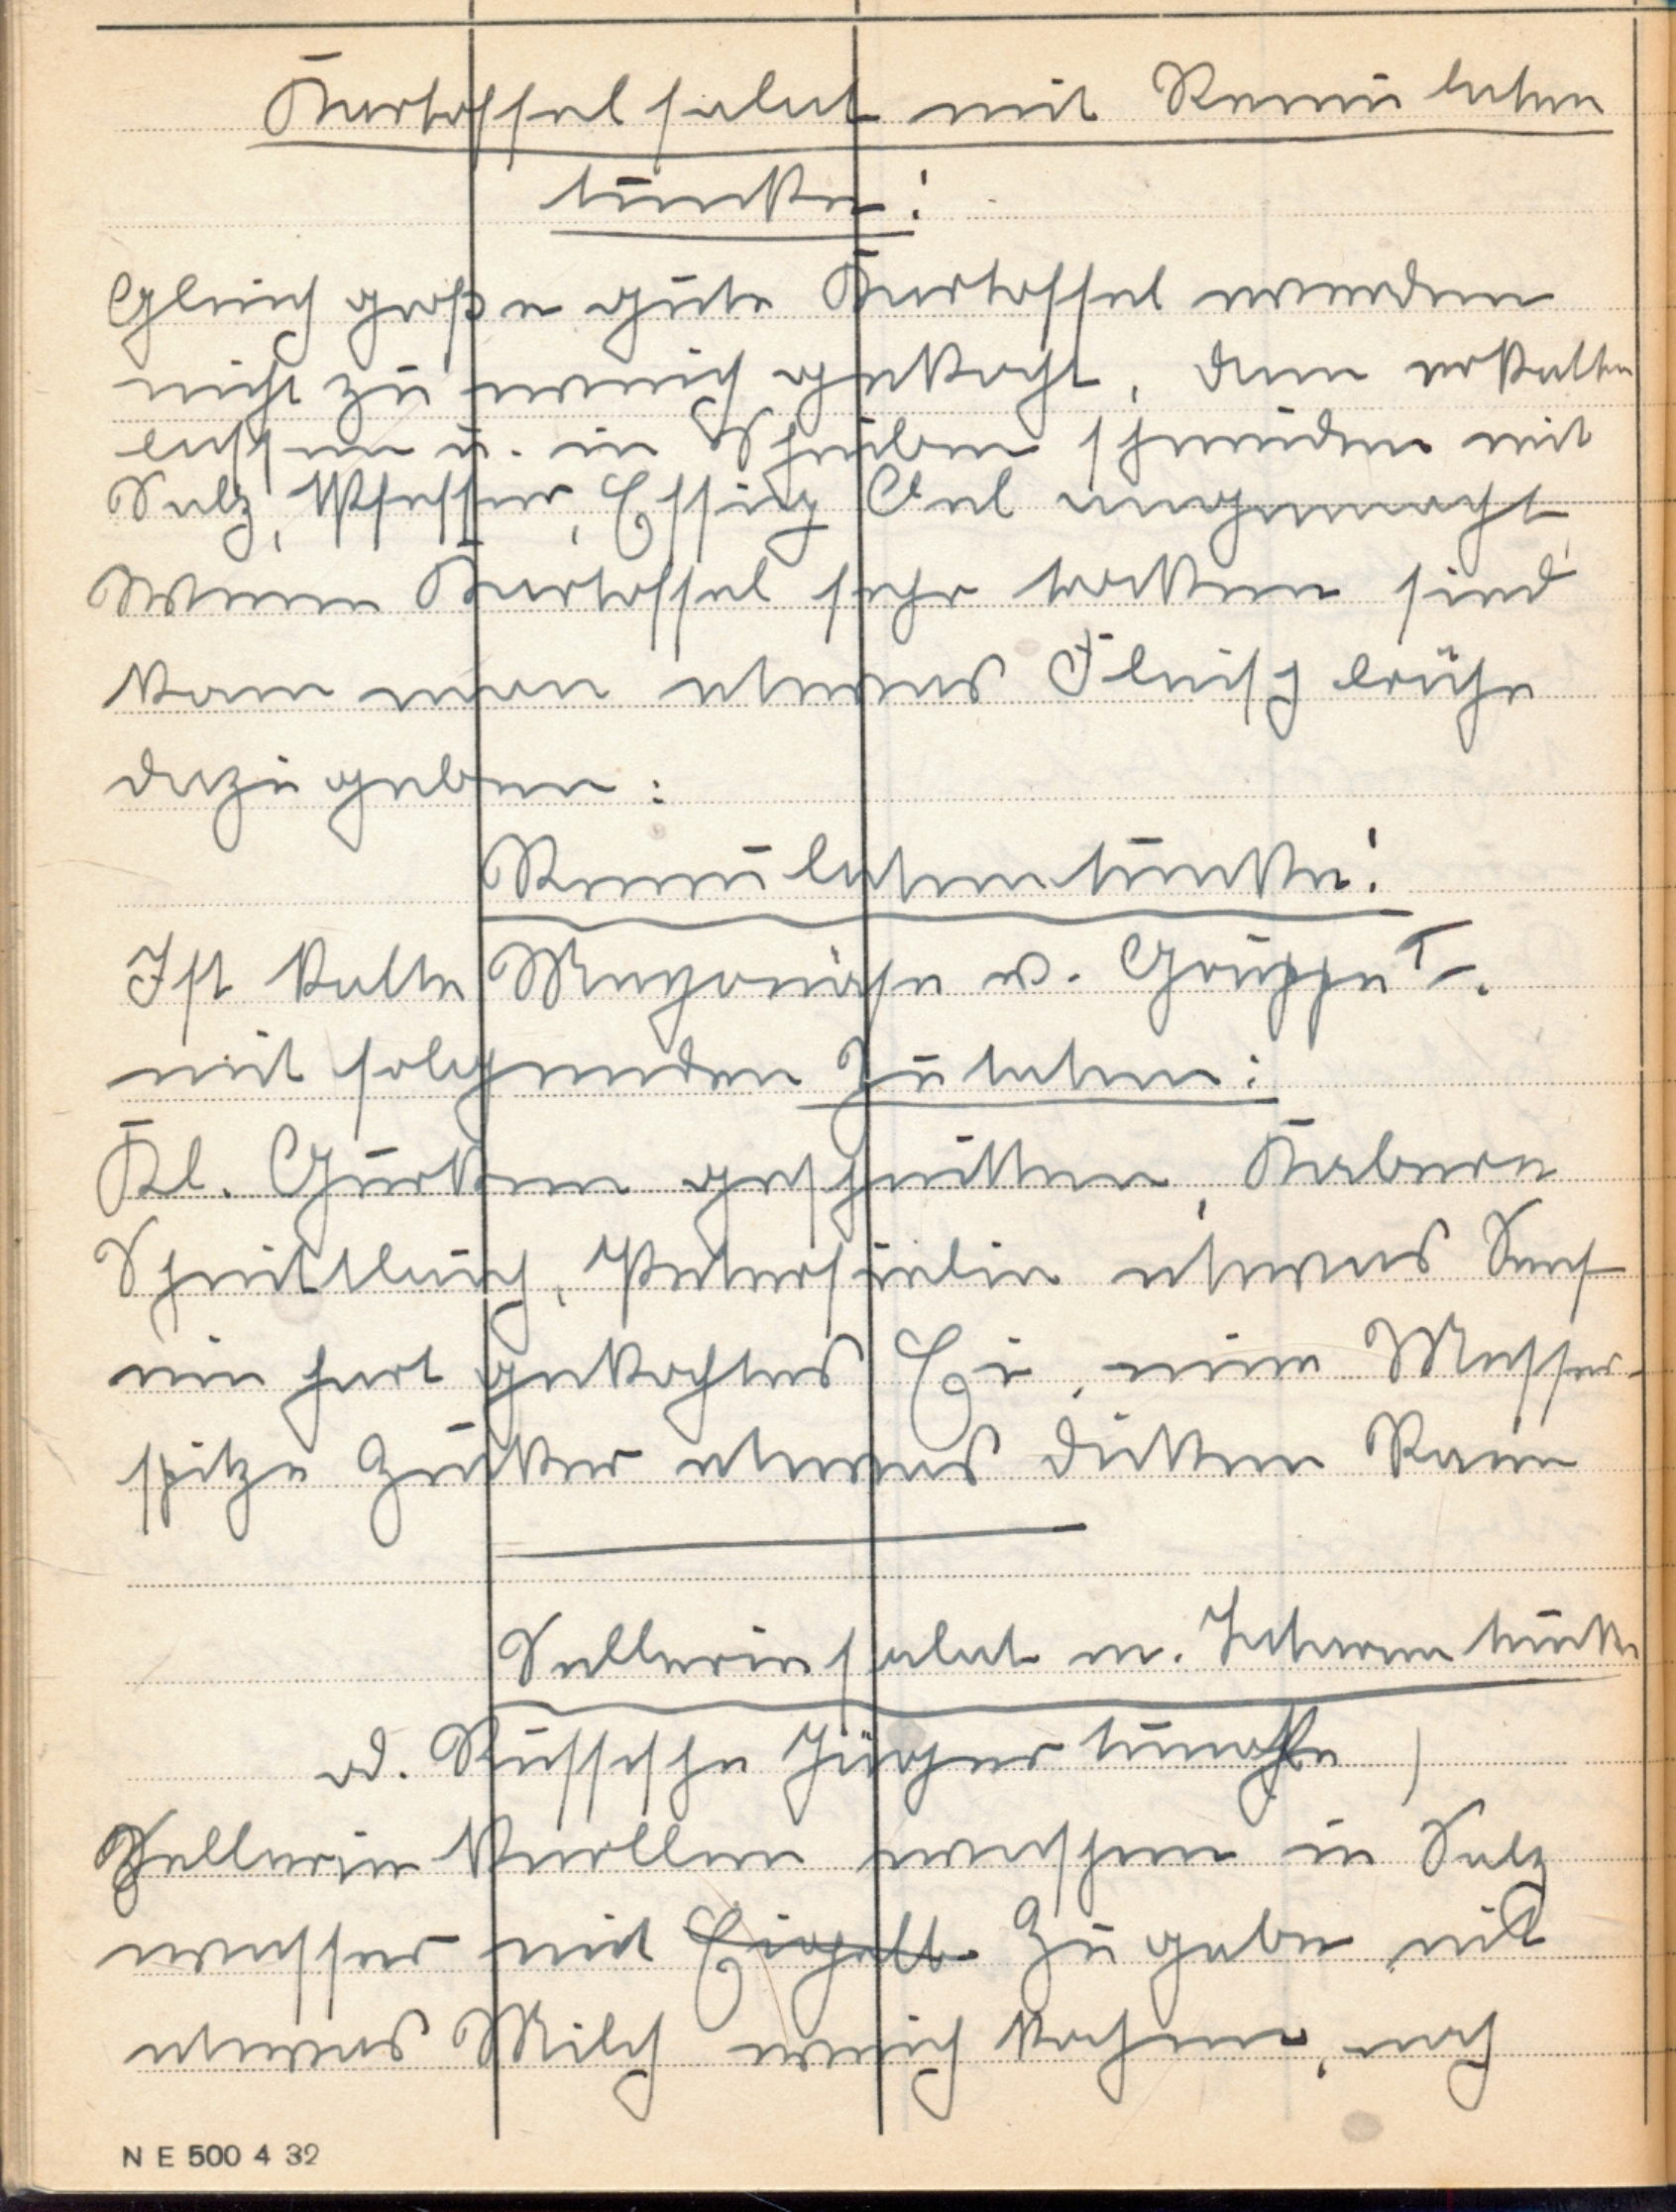 Kartoffelsalat mit Remulaten
tunke:
Gleich große gute Kartoffel werden
nicht zu weich gekocht, dann erkalten
lassen u. in Scheiben schneiden mit
Salz, Pfeffer, Essig Oel angemacht,
Wenn Kartoffel sehr trocken sind
kann man etwas Fleischbrühe
dazugeben:
Remulatentunke:
Ist kalte Mayonäse v. Gruppe I.
mit folgenden Zutaten:
Kl. Gurken geschnitten, Kabern
Schnittlauch, Petersielie etwas Senf
ein hart gekochtes Ei, eine Messer-
spitze Zucker etwas dicken Ram
Selleriesalat m. Tatarentunke
od. Russische Jägertunke)
Sellerie Knollen waschen in Salz
wasser mit Eigelb Zugabe mit
etwas Milch weich kochen, noch
N E 500 4 32